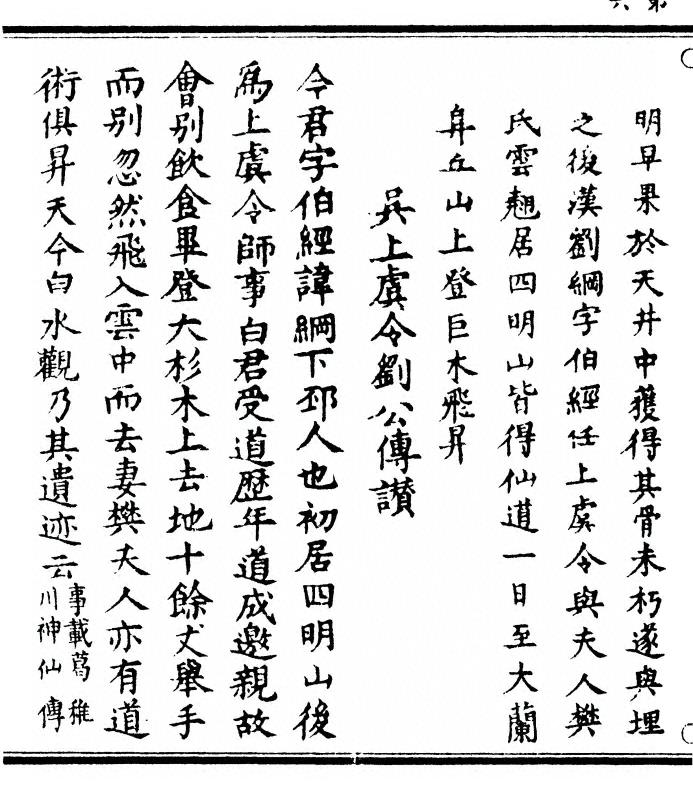 第六
明早果於天井中獲得其骨未朽遂與埋
之後漢劉綱字伯經任上虞令與夫人樊
氏雲翹居四明山皆得仙道一日至大蘭
阜丘山上登巨木飛昇
吳上虞令劉公傳讃
令君字伯經諱綱下邳人也初居四明山後
爲上虞令師事白君受道歷年道成邀親故
會別飲食畢登大杉木上去地十餘丈舉手
而別忽然飛入雲中而去妻樊夫人亦有道
術俱昇天今白水觀乃其遺迹云
事載葛稚
川神仙傳